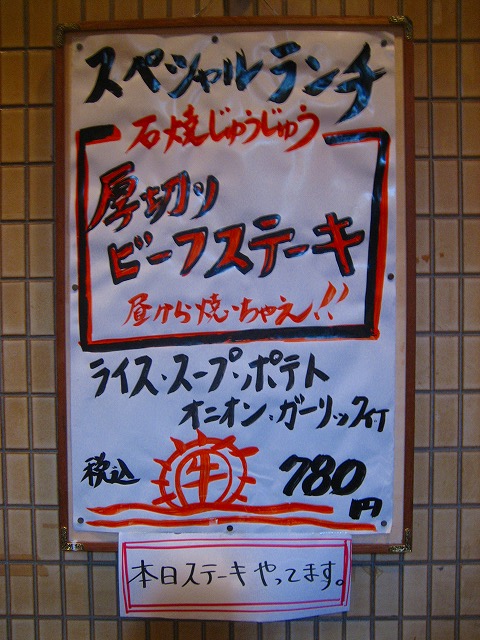 スペシャルランチ
石焼じゅうじゅう
厚切り
ビーフステーキ
昼から焼いちゃえ!!
ライス・スープ・ポテト
オニオン・ガーリック付
税込
牛
780円
本日ステーキやってます。